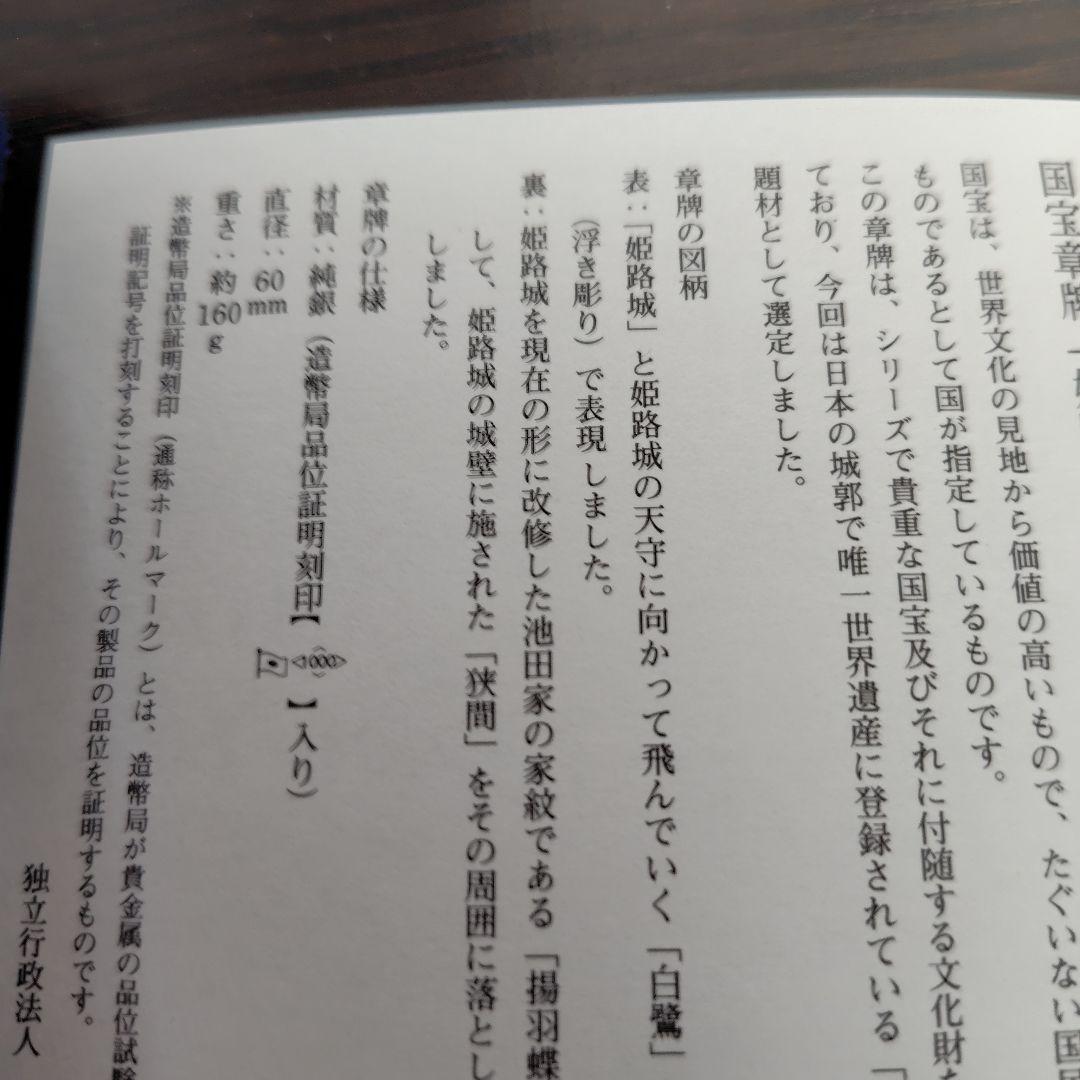 国宝章牌「
国宝は、世界文化の見地から価値の高いもので、たぐいない国民
ものであるとして国が指定しているものです。
この章牌は、シリーズで貴重な国宝及びそれに付随する文化財を
ており、今回は日本の城郭で唯一世界遺産に登録されている「
題材として選定しました。
章牌の図柄
表：「姫路城」と姫路城の天守に向かって飛んでいく「白鷺」
（浮き彫り）で表現しました。
裏：姫路城を現在の形に改修した池田家の家紋である「揚羽蝶
して、姫路城の城壁に施された「狭間」をその周囲に落とし
しました。
章牌の仕様
材質：純銀（造幣局品位証明刻印【 1000 】入り）
直径：60mm
重さ：約160g
※造幣局品位証明刻印（通称ホールマーク）とは、造幣局が貴金属の品位試験
証明記号を打刻することにより、その製品の品位を証明するものです。
独立行政法人